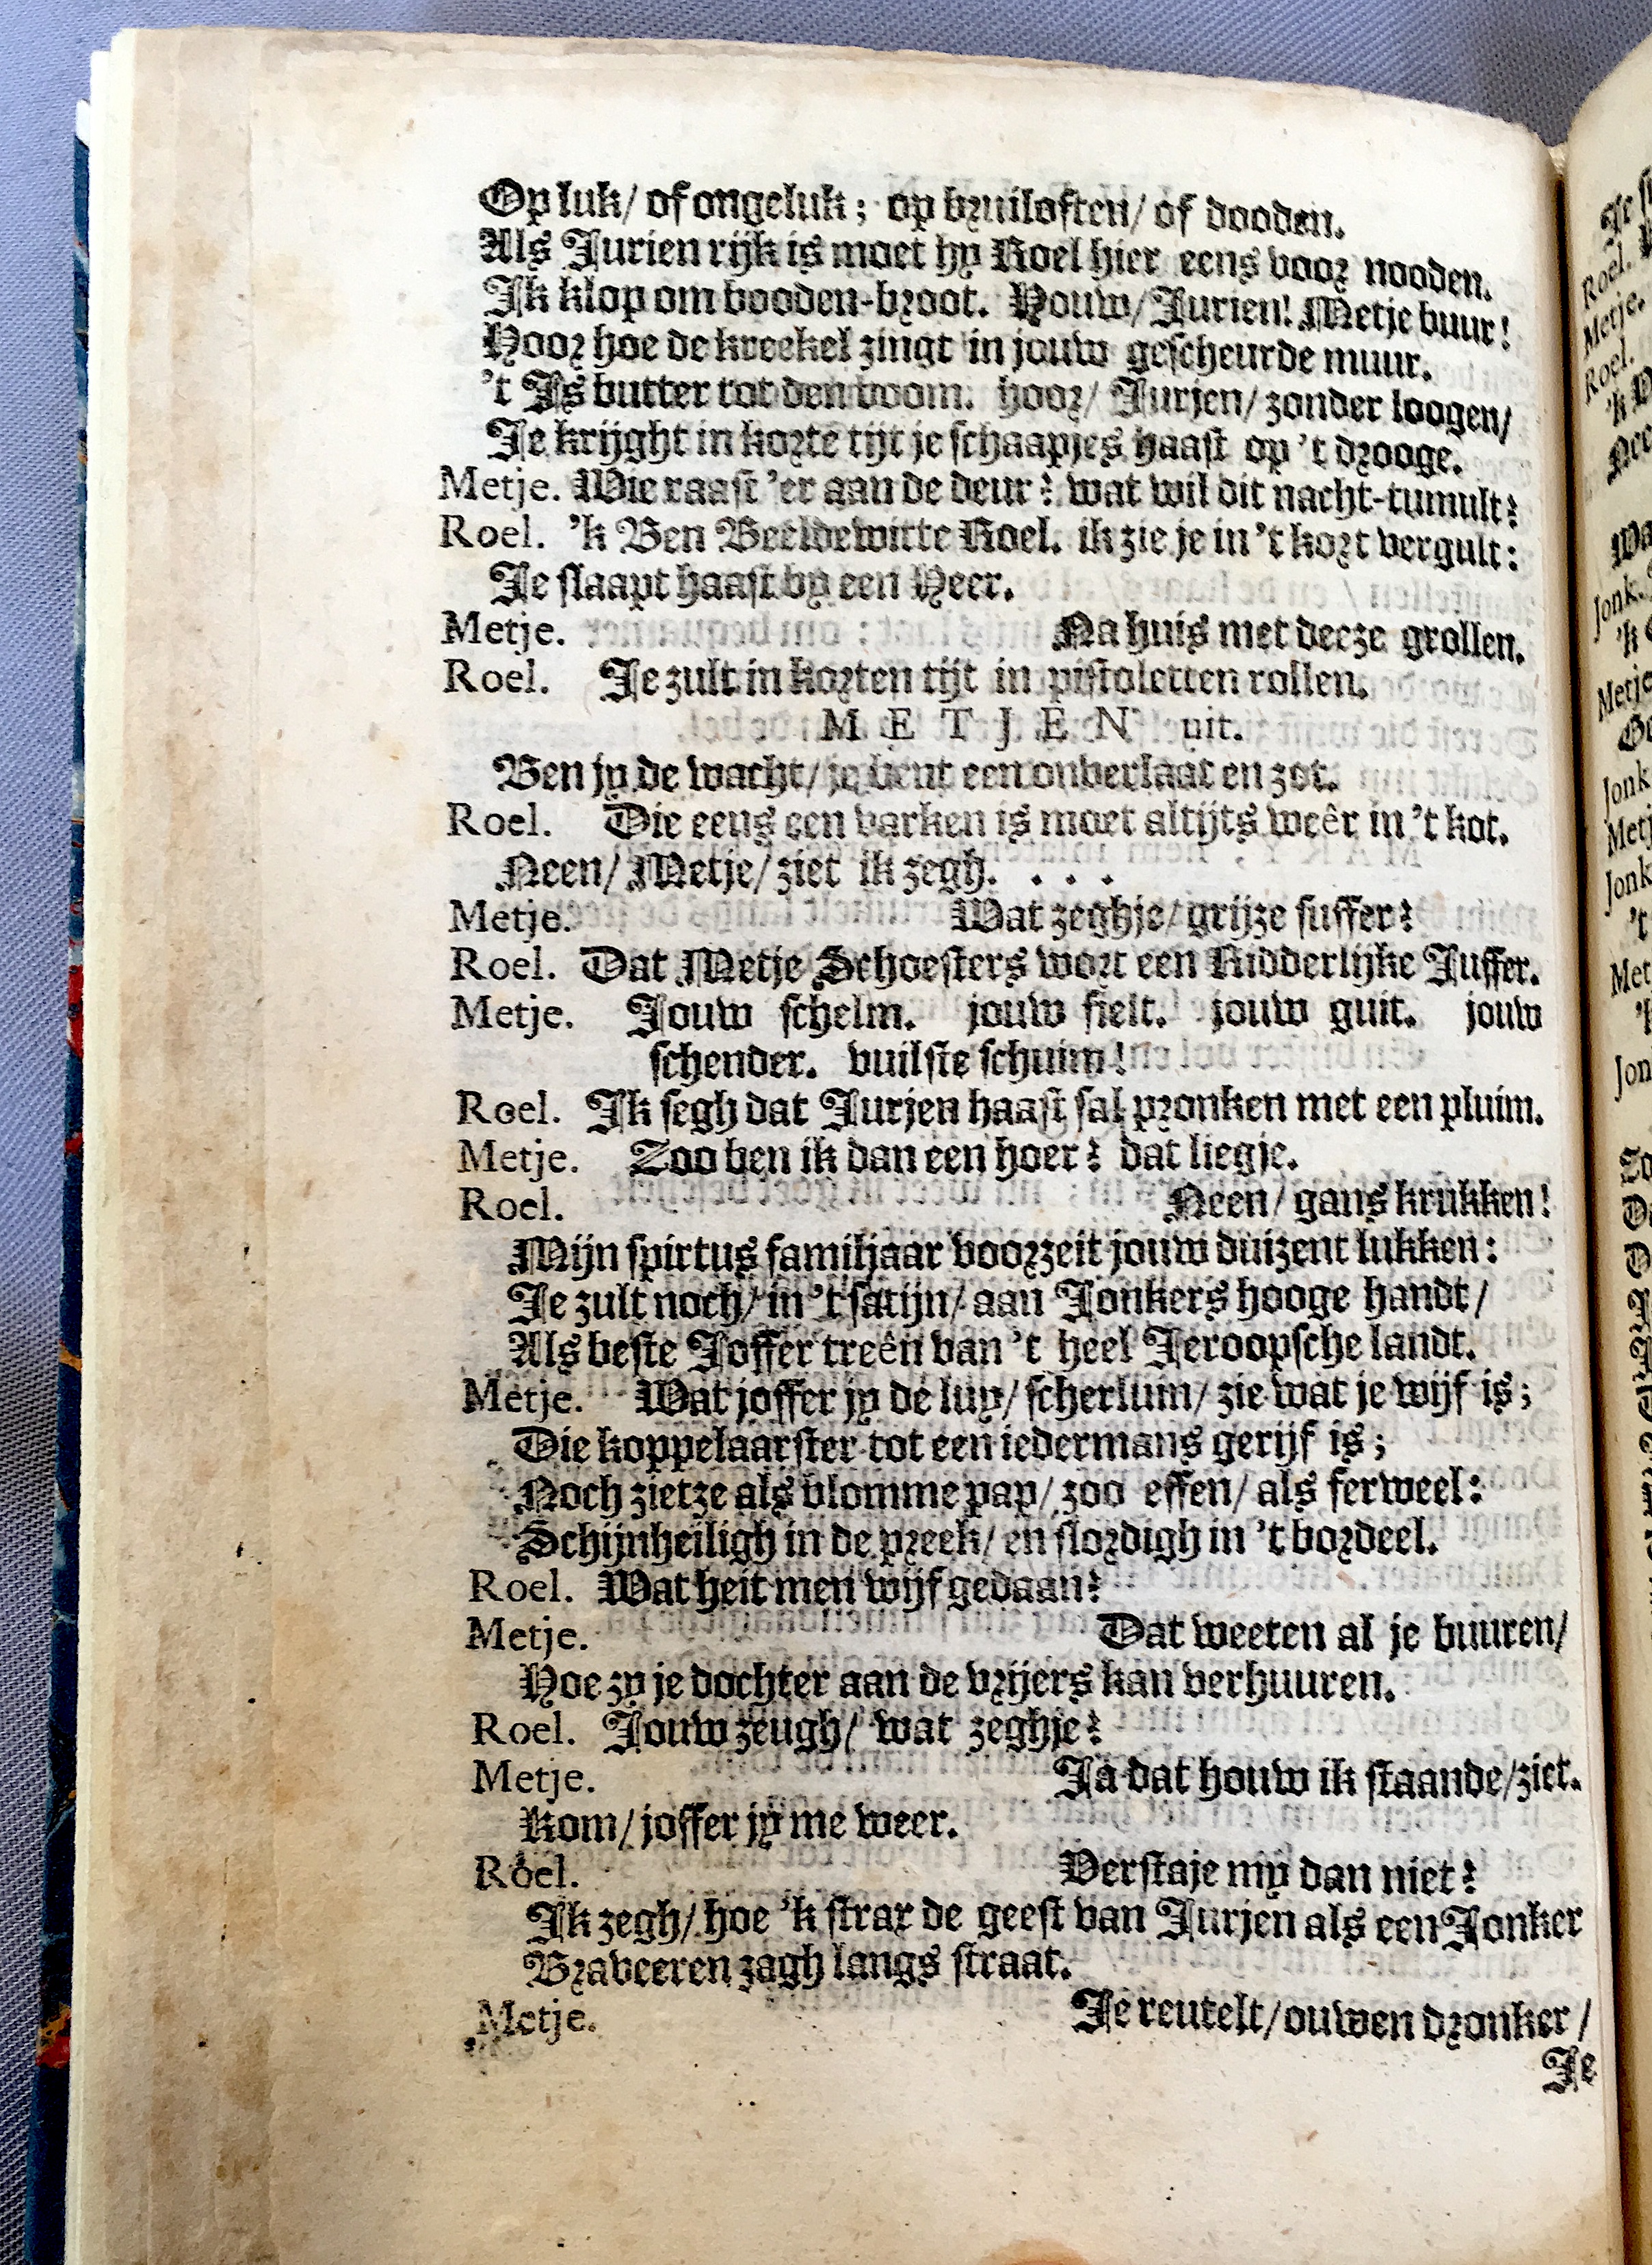 Op luk/ of ongeluk; op bruiloften/ of dooden.
Als Jurien rijk is moet hy Roel hier eens voor nooden.
Ik klop om booden-broot. Houw/ Jurien! Metje buur!
Hoor hoe de kreekel zingt in jouw gescheurde muur.
't Is butter tot den boom. hoor/ Jurjen/ zonder loogen/
Je krijght in korte tijt je schaapjes haast op 't drooge.
Metje. Wie raast 'er aan de deur? wat wil dit nacht-tumult?
Roel. 'k Ben Beeldewitte Roel. ik zie je in 't kort vergult:
Je slaapt haast by een Heer.
Metje. Na huis met deeze grollen.
Roel. Je zult in korten tijt in pistoletten rollen.
METJEN uit.
Ben jy de wacht/ je bent een onverlaat en zot.
Roel. Die eens een varken is moet altijts weêr in 't kot.
Neen/ Metje/ ziet ik zegh. . . .
Metje. Wat zeghje/ grijze suffer?
Roel. Dat Metje Schoesters wort een Ridderlijke Juffer.
Metje. Jouw schelm. jouw fielt. jouw guit. jouw
schender. vuilste schuim!
Roel. Ik segh dat Jurjen haast sal pronken met een pluim.
Metje. Zoo ben ik dan een hoer? dat liegje.
Roel. Neen/ gans krukken!
Mijn spirtus familjaar voorzeit jouw duizent lukken:
Je zult noch/ in 't satijn/ aan Jonkers hooge handt/
Als beste Joffer treên van 't heel Jeroopsche landt.
Metje. Wat joffer jy de luy/ scherluin/ zie wat je wijf is;
Die koppelaarster tot een iedermans gerijf is;
Noch zietze als blomme pap/ zoo effen/ als ferweel:
Schijnheiligh in de preek/ en slordigh in 't bordeel.
Roel. Wat heit men wijf gedaan?
Metje. Dat weeten al je buuren/
Hoe zy je dochter aan de vrijers kan verhuuren.
Roel. Jouw zeugh/ wat zeghje?
Metje. Ja dat houw ik staande/ ziet.
Kom/ joffer jy me weer.
Roel. Verstaje my dan niet?
Ik zegh/ hoe 'k strax de geest van Jurjen als een Jonker
Braveeren zagh langs straat.
Metje. Je reutelt/ ouwen dronker/
Je